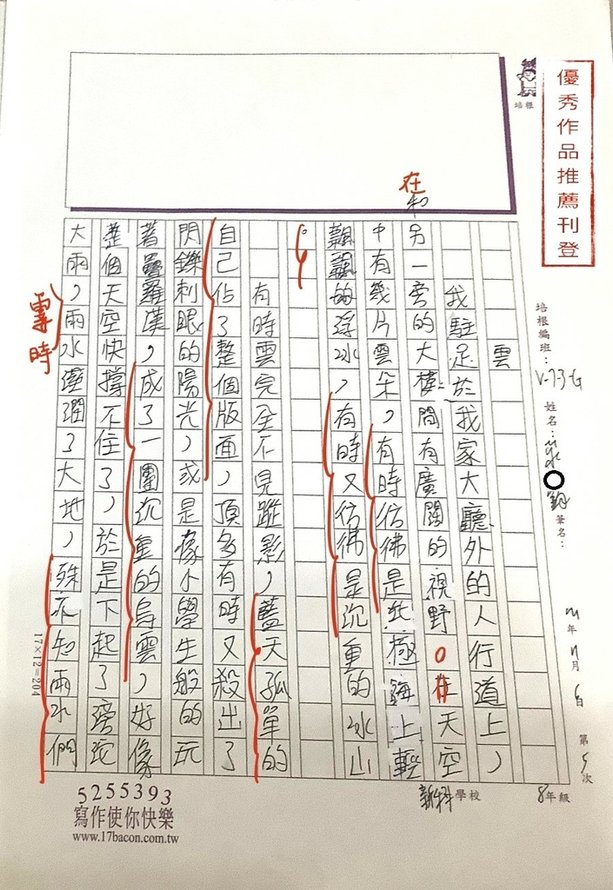 優秀作品推薦刊登
培根
培根編班：V-73G
姓名：
筆名：
年 11月 6日 第 5次
新科學校 8年級
雲
我駐足於我家大廳外的人行道上，
在
和
另一旁的大樓間有廣闊的視野。在天空
中有幾片雲朵，有時彷彿是北極海上輕
飄飄的浮冰，有時又彷彿是沉重的冰山
。
有時雲完全不見蹤影，藍天孤單的
自己佔了整個版面，頂多有時又殺出了
閃鑠刺眼的陽光，或是像小學生般的玩
著疊羅漢，成了一團沉重的烏雲，好像
整個天空快撐不住了，於是下起了滂沱
大雨，雨水溼潤了大地，殊不知雨水們
霎時
17×12=204
5255393
寫作使你快樂
www.17bacon.com.tw